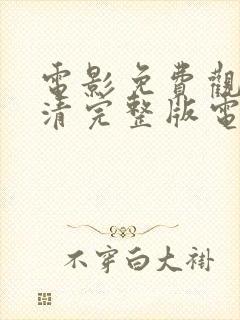 電影免費觀
清完整版電
不穿白大褂